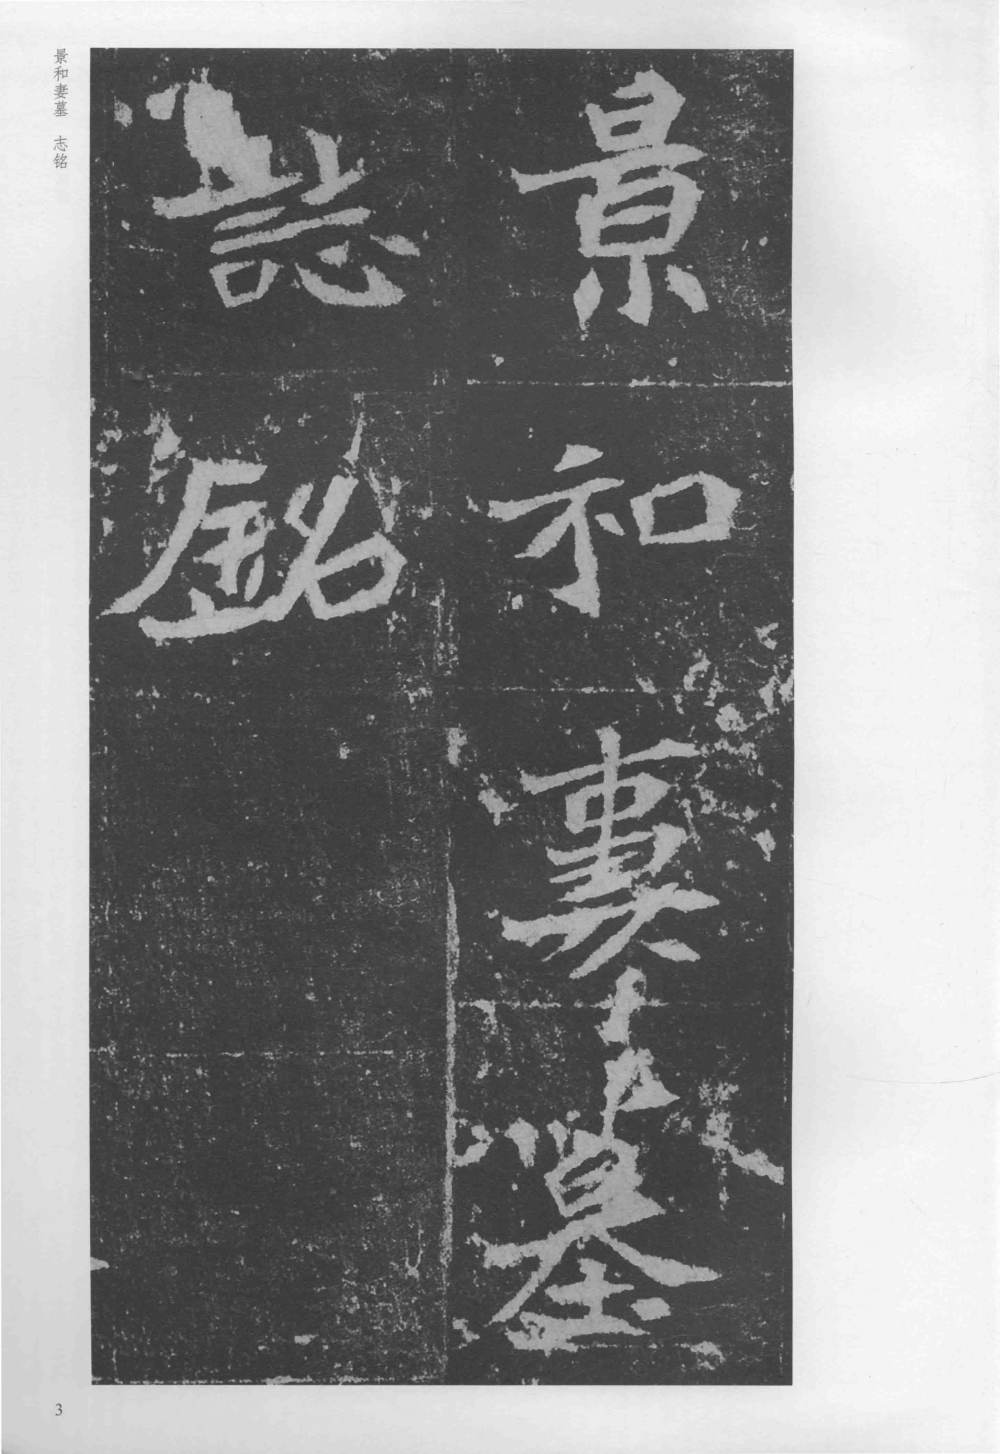 景和妻墓
誌銘
景和妻墓　志铭
3